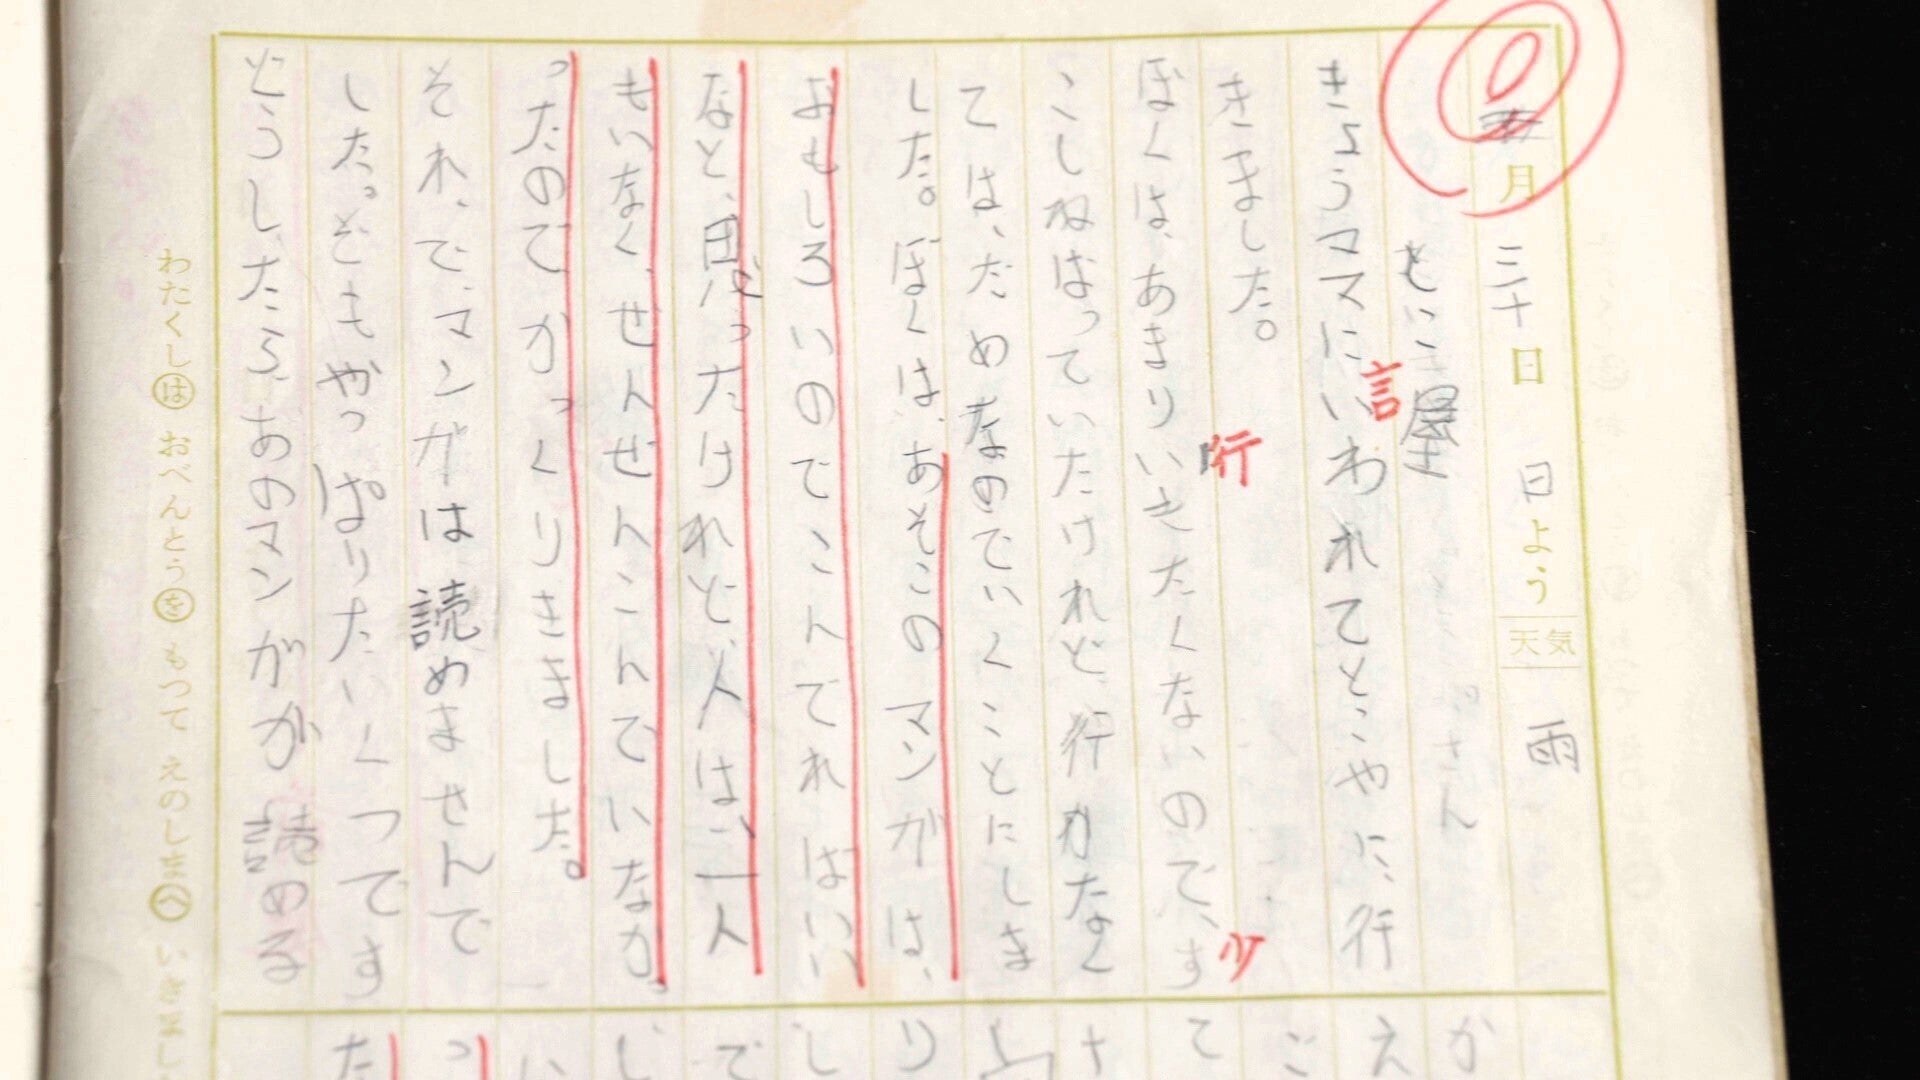 月 三十日 日よう 天気 雨
とこ屋
きょうママにいわれてとこやに、行
言
きました。
行
ぼくは、あまりいきたくないので、す
少
こしねばっていたけれど、行かなく
ては、だめなのでいくことにしま
した。ぼくは、あそこのマンガは、
おもしろいのでこんでれはいい
なと、思ったけれど、人は、一人
もいなく、ぜんぜんこんでいなか
ったのでがっくりきました。
それ、で、マンガは読めませんで
した。でもやっぱりたいくつです
どうしたら、あのマンガが読める
わたくしは おべんとうを もつて えのしまへ
か
え
こ
て
さ
り
し
で
じ
い
っ
た